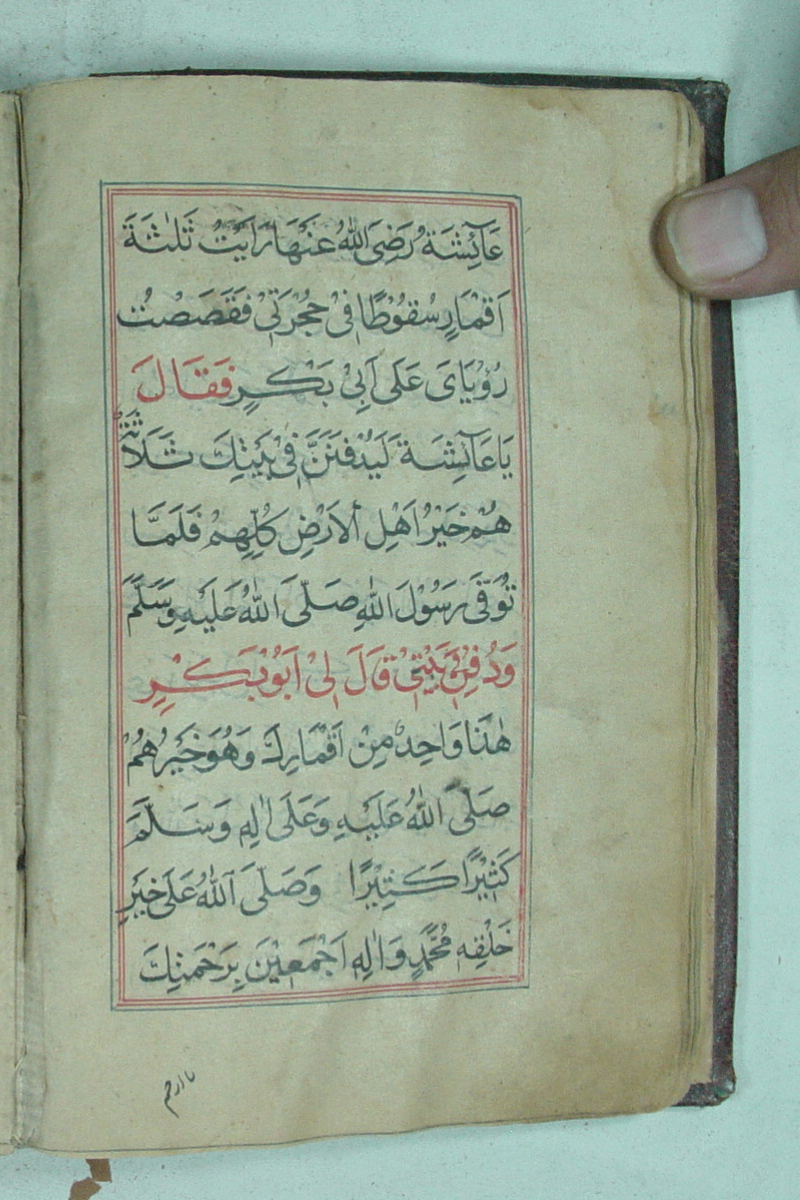 عَآئِشَةُ رَضِىَ اللّٰهُ عَنْهَا رَاَيْتُ ثَلٰثَةَ
اَقْمَارٍ سُقُوْطًا فِىْ حُجْرَتِىْ فَقَصَصْتُ
رُؤْيَاىَ عَلٰى اَبِىْ بَكْرٍ فَقَالَ
يَا عَآئِشَةَ لَيُدْفَنَنَّ فِىْ بَيْتِكَ ثَلَاثَةٌ
هُمْ خَيْرُ اَهْلِ الْاَرْضِ كُلِّهِمْ فَلَمَّا
تُوُفِّىَ رَسُوْلَ اللّٰهِ صَلَّى اللّٰهُ عَلَيْهِ وَسَلَّمَ
وَدُفِنَ فِىْ بَيْتِىْ قَالَ لِىْ اَبُوْ بَكْرٍ
هٰذَا وَاحِدٌ مِنْ اَقْمَارِكَ وَهُوَ خَيْرُهُمْ
صَلَّى اللّٰهُ عَلَيْهِ وَعَلٰى اٰلِهِ وَسَلَّمَ
كَثِيْرًا كَثِيْرًا وَصَلَّى اللّٰهُ عَلٰى خَيْرِ
خَلْقِهِ مُحَمَّدٍ وَاٰلِهِ اَجْمَعِيْنَ بِرَحْمَتِكَ
يا ارحم